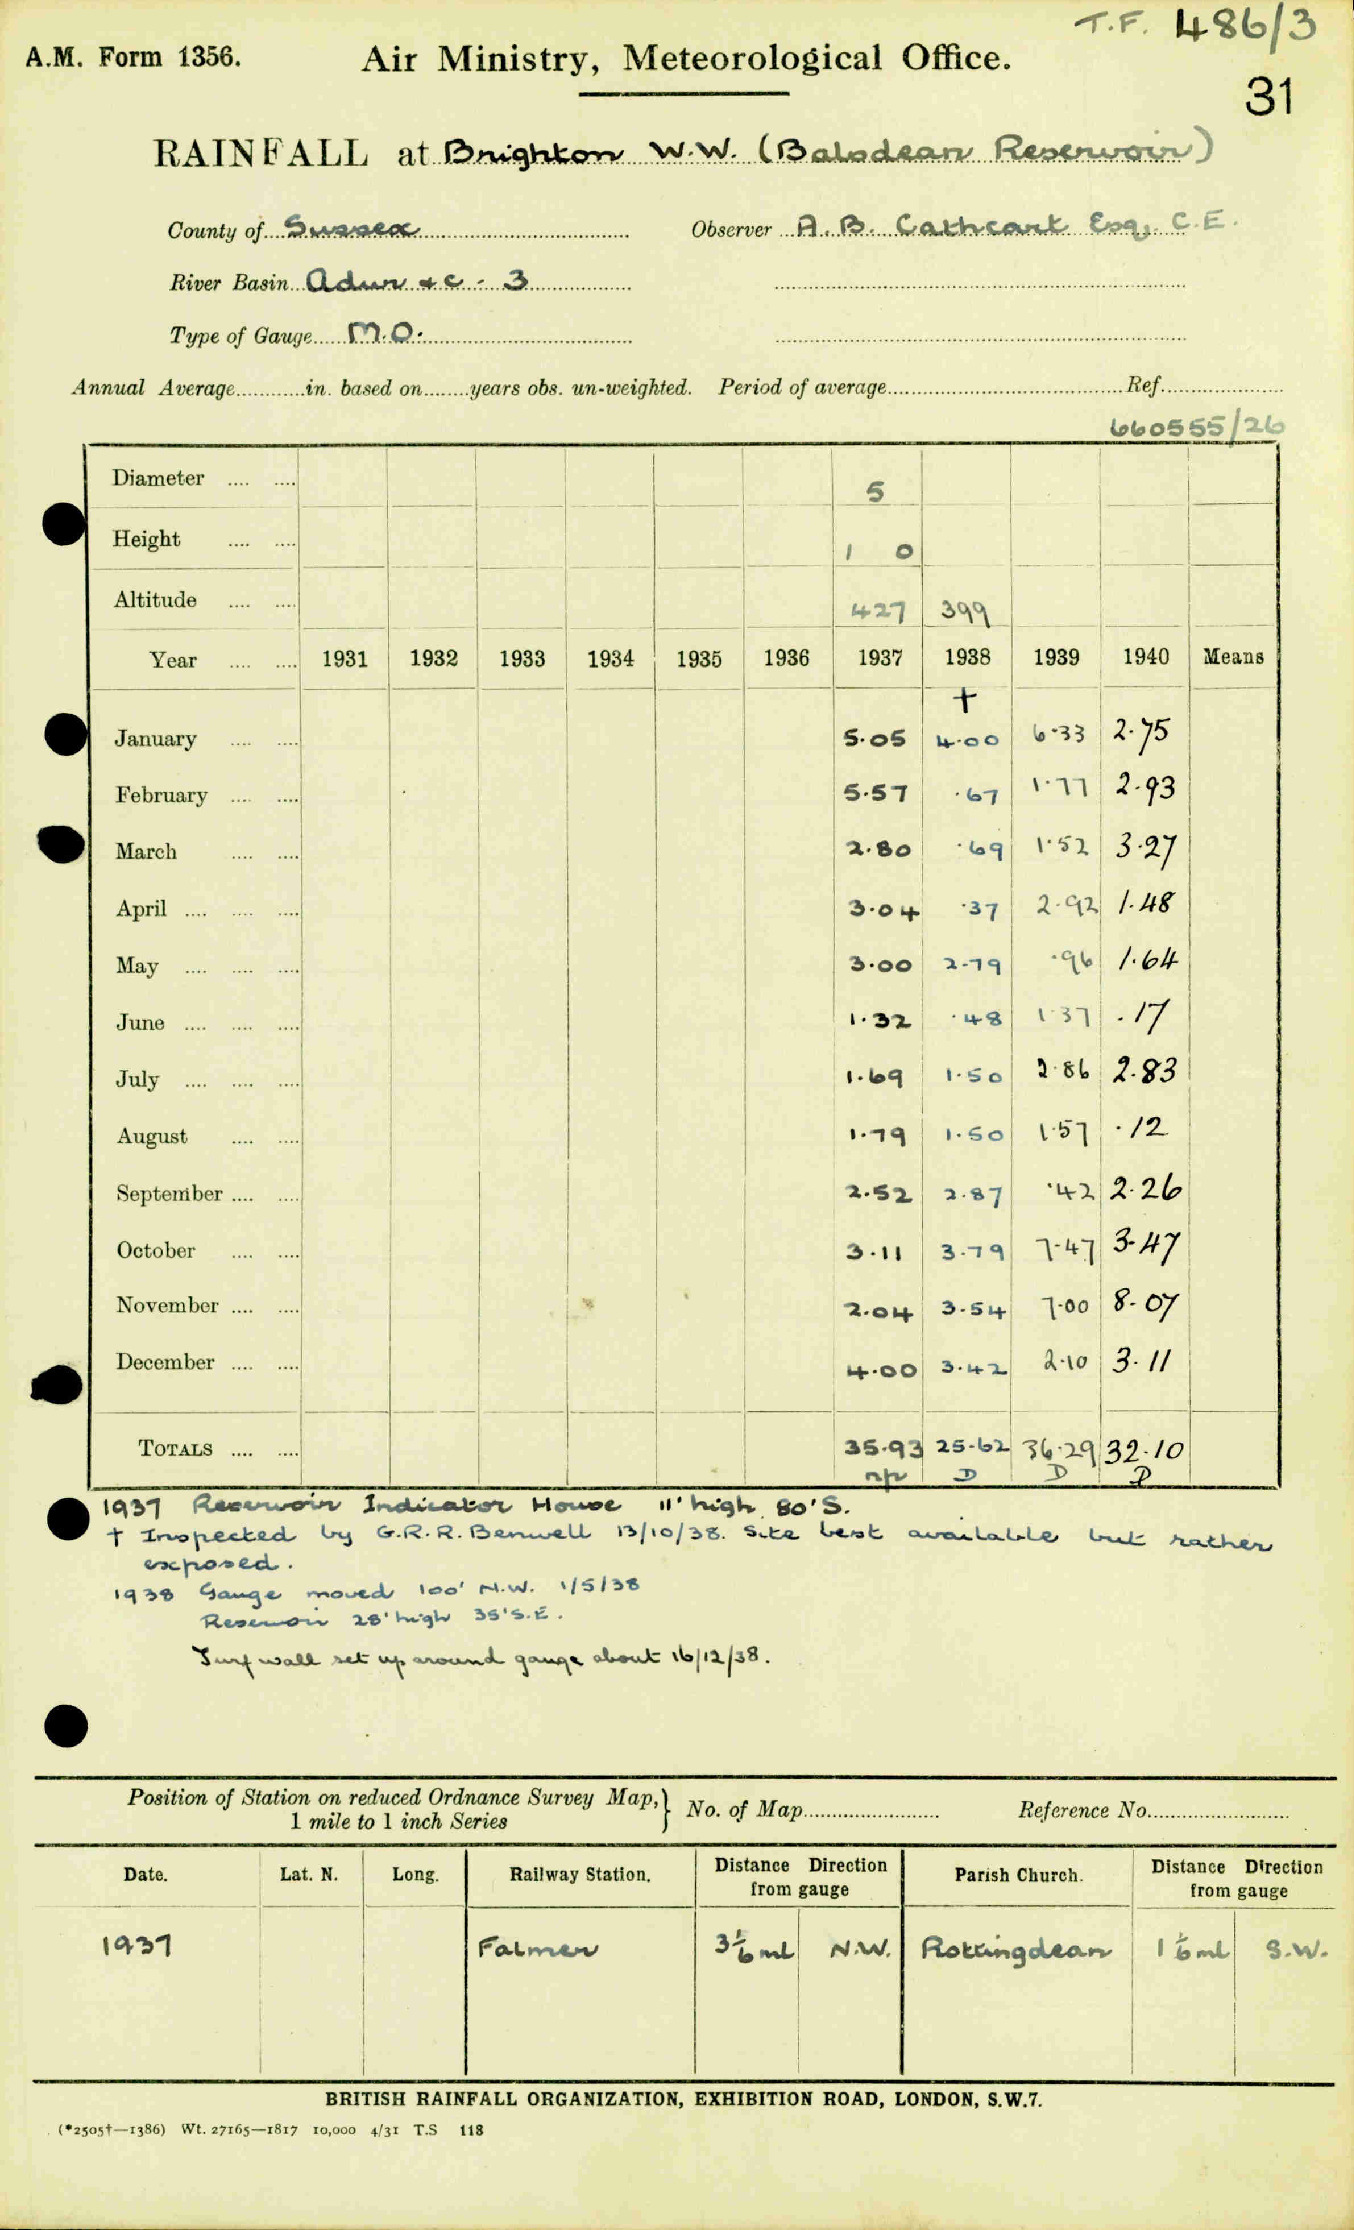 T.F. 486/3
A.M. Form 1356. Air Ministry, Meteorological Office.
31
RAINFALL at Brighton W.W. (Balsdean Reservoir)
County of Sussex Observer A.B. Cathcart Esq, C.E.
River Basin Adur &c - 3
Type of Gauge M.O.
Annual Average............in. based on........years obs. un-weighted. Period of average........................................Ref.....................
660555/26
Diameter .... .... 5
Height .... .... 1 0
Altitude .... .... 427 399
Year .... .... 1931 1932 1933 1934 1935 1936 1937 1938 1939 1940 Means
†
January .... .... 5.05 4.00 6.33 2.75
February .... .... 5.57 .67 1.77 2.93
March .... .... 2.80 .69 1.52 3.27
April .... .... .... 3.04 .37 2.92 1.48
May .... .... .... 3.00 2.79 .96 1.64
June .... .... .... 1.32 .48 1.37 .17
July .... .... .... 1.69 1.50 2.86 2.83
August .... .... 1.79 1.50 1.57 .12
September .... .... 2.52 2.87 .42 2.26
October .... .... 3.11 3.79 7.47 3.47
November .... .... 2.04 3.54 7.00 8.07
December .... .... 4.00 3.42 2.10 3.11
TOTALS .... .... 35.93 25.62 36.29 32.10
np D D D
1937 Reservoir Indicator House 11' high 80'S.
† Inspected by G.R.R. Benwell 13/10/38. Site best available but rather
exposed.
1938 Gauge moved 100' N.W. 1/5/38
Reservoir 28' high 35'S.E.
Turf wall set up around gauge about 16/12/38.
Position of Station on reduced Ordnance Survey Map,} No. of Map........................ Reference No.........................
1 mile to 1 inch Series
Date. Lat. N. Long. Railway Station. Distance Direction from gauge Parish Church. Distance Direction from gauge
1937 Falmer 3 1/6 ml N.W. Rottingdean 1 1/6 ml S.W.
BRITISH RAINFALL ORGANIZATION, EXHIBITION ROAD, LONDON, S.W.7.
(*2505†—1386) Wt. 27165—1817 10,000 4/31 T.S 118